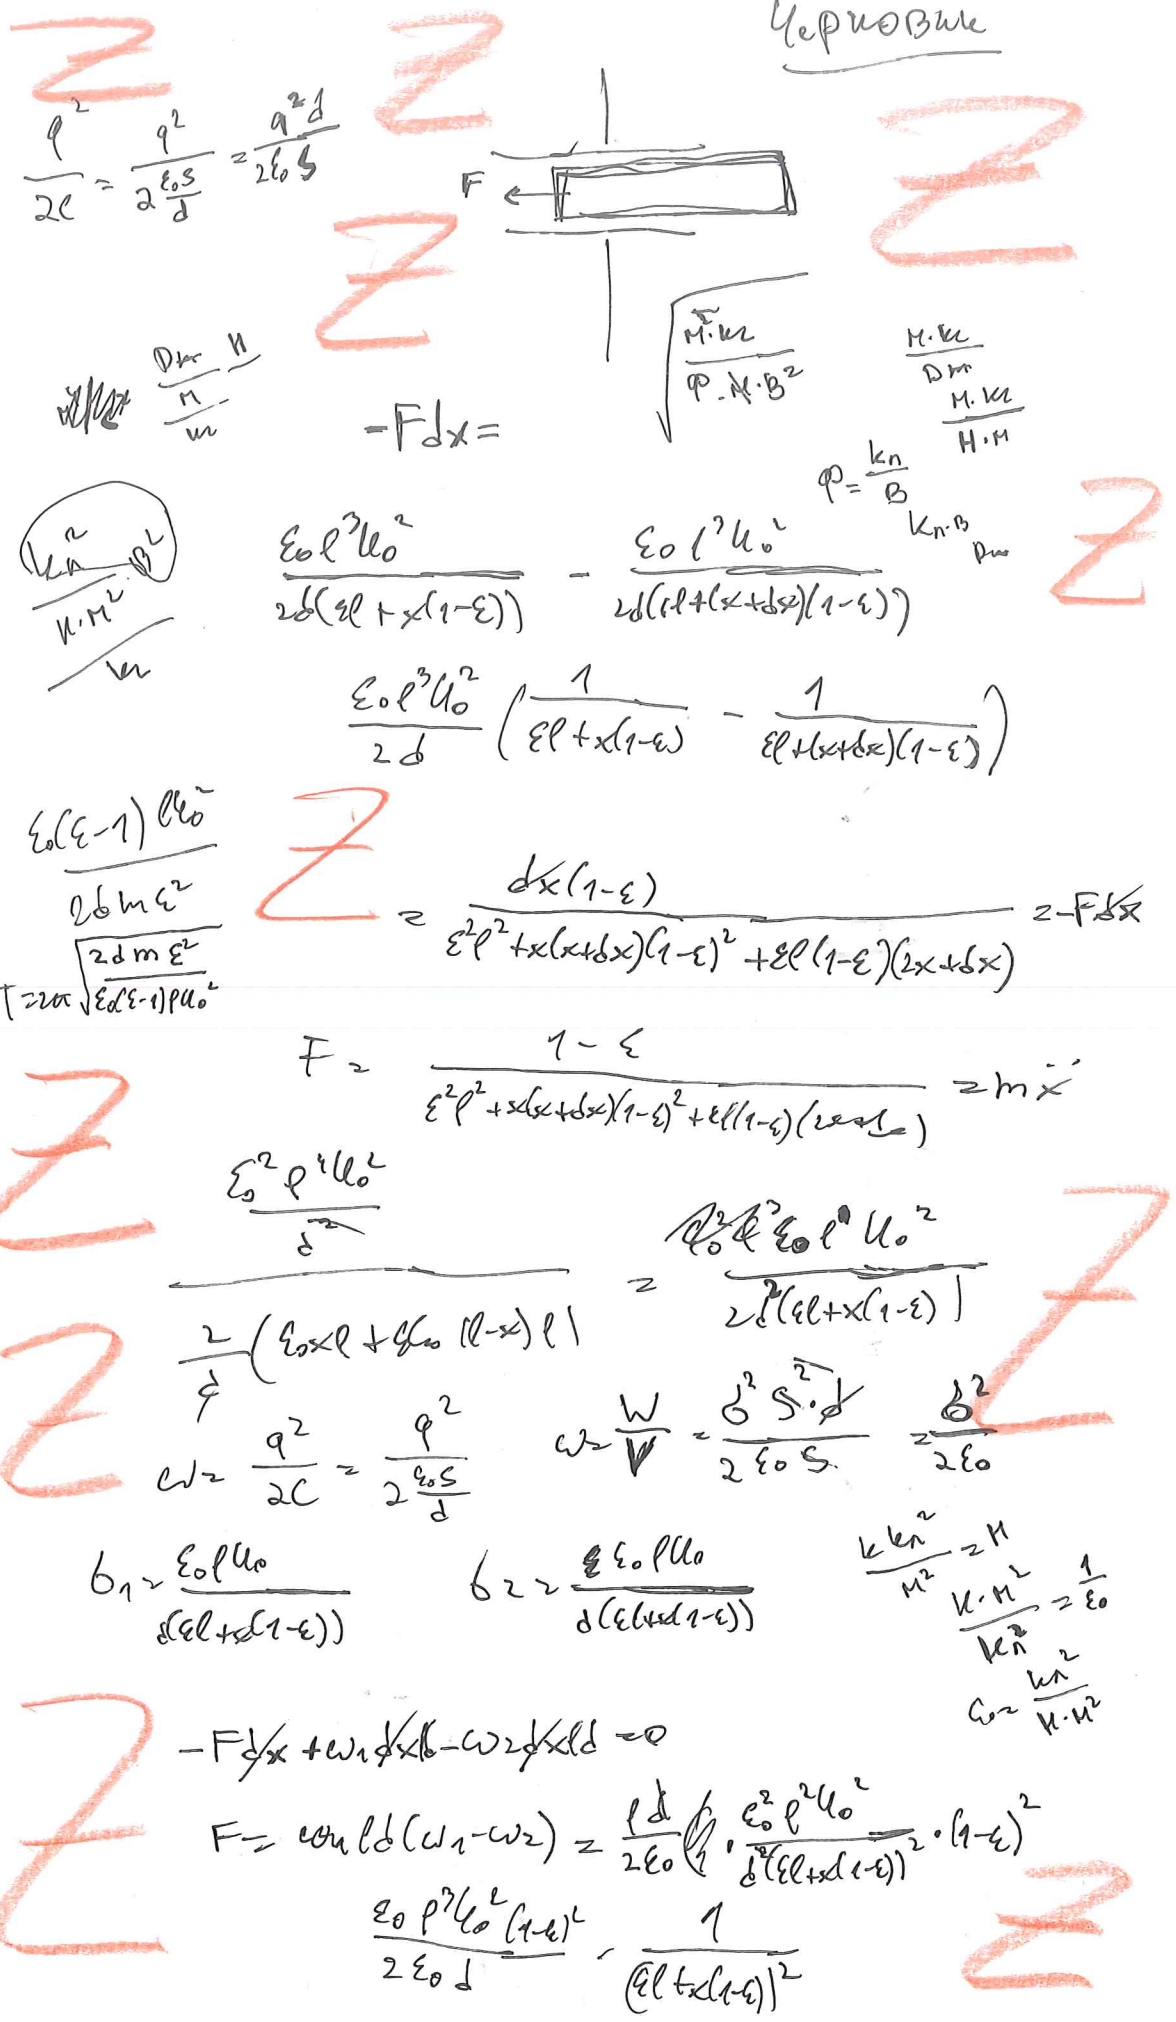 Черновик
q²/2C = q²/(2 ε₀S/d) = q²d/(2ε₀S)
F
√(м²·кг/(Ф·м·В²))
м·кг/Дж
м·кг/(Н·м)
Дж/м/кг Н
-Fdx=
Ф = Кл/В
Кл·В
Дж
Кл²·В²/(Н·м²)/кг
ε₀l³U₀²/(2d(εl+x(1-ε))) - ε₀l³U₀²/(2d(εl+(x+dx)(1-ε)))
ε₀l³U₀²/(2d) (1/(εl+x(1-ε)) - 1/(εl+(x+dx)(1-ε)))
ε₀(ε-1)lU₀²/(2dmε²)
T=2π√(2dmε²/(ε₀(ε-1)lU₀²))
= dx(1-ε)/(ε²l²+x(x+dx)(1-ε)²+εl(1-ε)(2x+dx)) = -Fdx
F = (1-ε)/(ε²l²+x(x+dx)(1-ε)²+εl(1-ε)(2x+dx)) = mẍ
(ε₀²l⁴U₀²/d²)/(2/d (ε₀xl+εε₀(l-x)l)) = ε₀l³U₀²/(2d(εl+x(1-ε)))
ω= q²/2C = q²/(2 ε₀S/d)
ω= W/V = σ²S²·d/(2ε₀S) = σ²/(2ε₀)
σ₁= ε₀lU₀/(d(εl+x(1-ε)))
σ₂= εε₀lU₀/(d(εl+x(1-ε)))
k Кл²/м² = Н
Н·м²/Кл² = 1/ε₀
ε₀= Кл²/(Н·м²)
-Fdx+ω₁dxld-ω₂dxld=0
F= ld(ω₁-ω₂) = ld/(2ε₀) · ε₀²l²U₀²/(d²(εl+x(1-ε))²) · (1-ε)²
ε₀l³U₀²(1-ε)²/(2ε₀d) · 1/(εl+x(1-ε))²